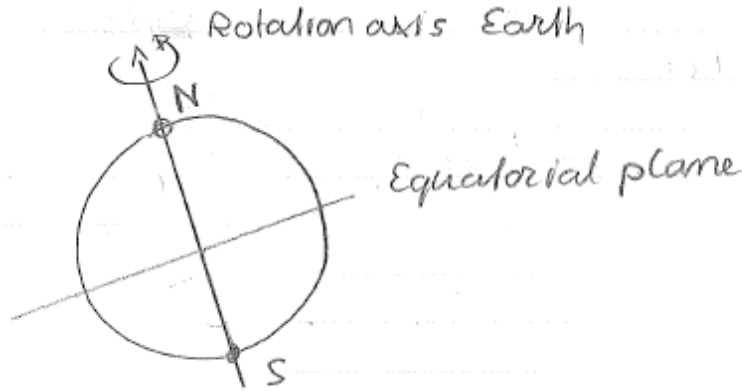 Rotation axis Earth
N
Equatorial plane
S